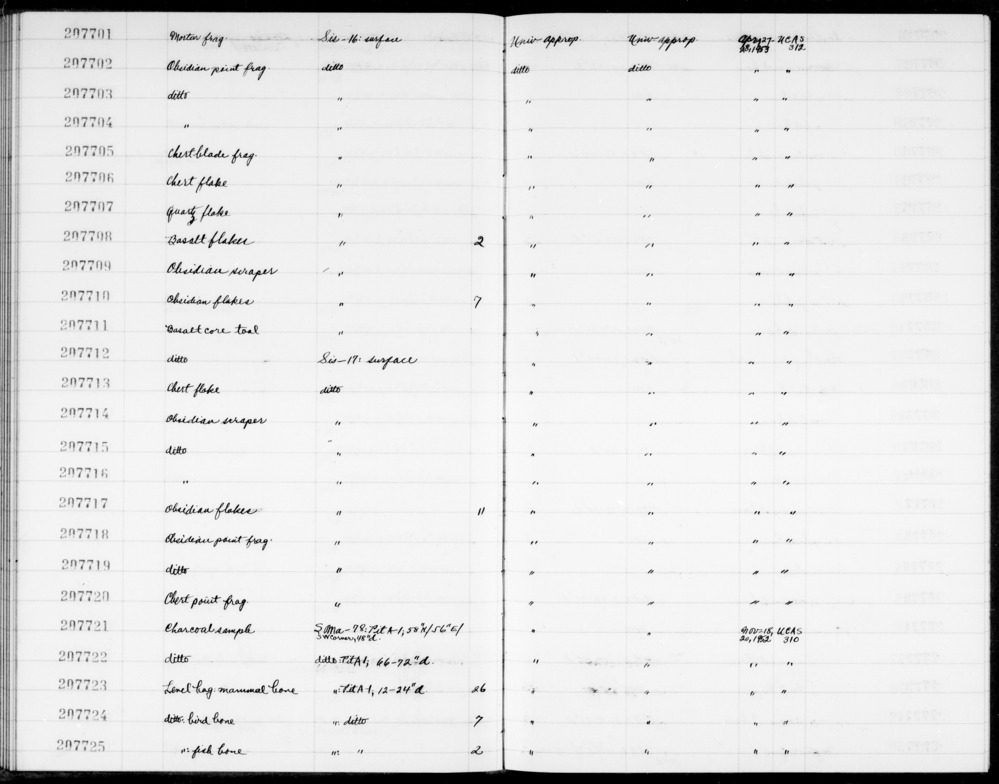 297701 Mortar frag. Sis-16: surface Univ approp Univ approp Apr. 27-28, 1953 UCAS 312
297702 Obsidian point frag. ditto ditto ditto " "
297703 ditto " " " " "
297704 " " " " " "
297705 Chert blade frag. " " " " "
297706 Chert flake " " " " "
297707 Quartz flake " " " " "
297708 Basalt flakes " 2 " " " "
297709 Obsidian scraper " " " " "
297710 Obsidian flakes " 7 " " " "
297711 Basalt core tool " " " " "
297712 ditto Sis-17: surface " " " "
297713 Chert flake ditto " " " "
297714 Obsidian scraper " " " " "
297715 ditto " " " " "
297716 " " " " " "
297717 Obsidian flakes " 11 " " " "
297718 Obsidian point frag. " " " " "
297719 ditto " " " " "
297720 Chert point frag. " " " " "
297721 Charcoal sample SMa-78: Pit A-1; 58"N/56"E/ SW corner, 48"d. " " Nov. 15, 20, 1952 UCAS 310
297722 ditto ditto: Pit A1; 66-72"d. " " " "
297723 Level bag: mammal bone ": Pit A-1, 12-24"d. 26 " " " "
297724 ditto: bird bone ": ditto 7 " " " "
297725 ": fish bone ": " 2 " " " "